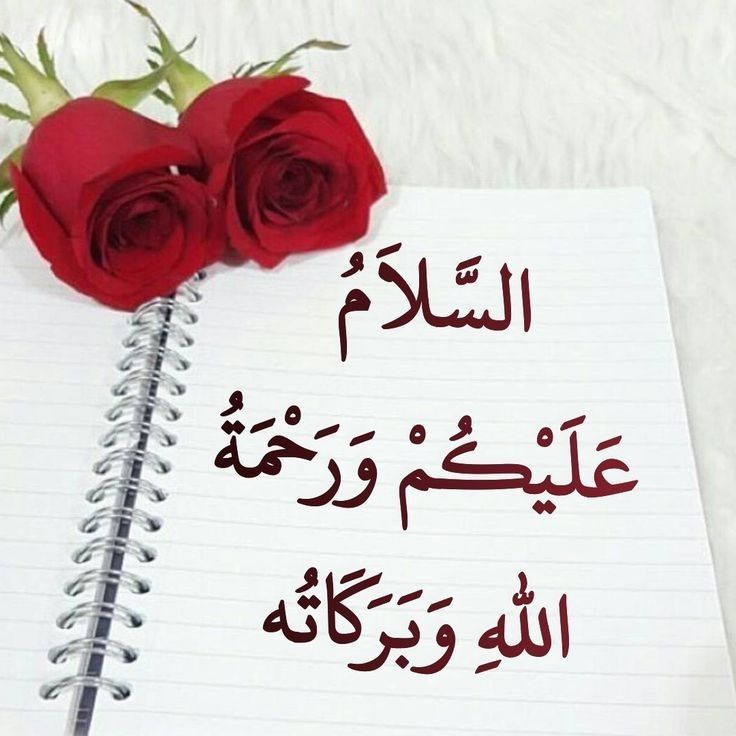 السَّلَامُ
عَلَيْكُمْ وَرَحْمَةُ
اللهِ وَبَرَكَاتُه